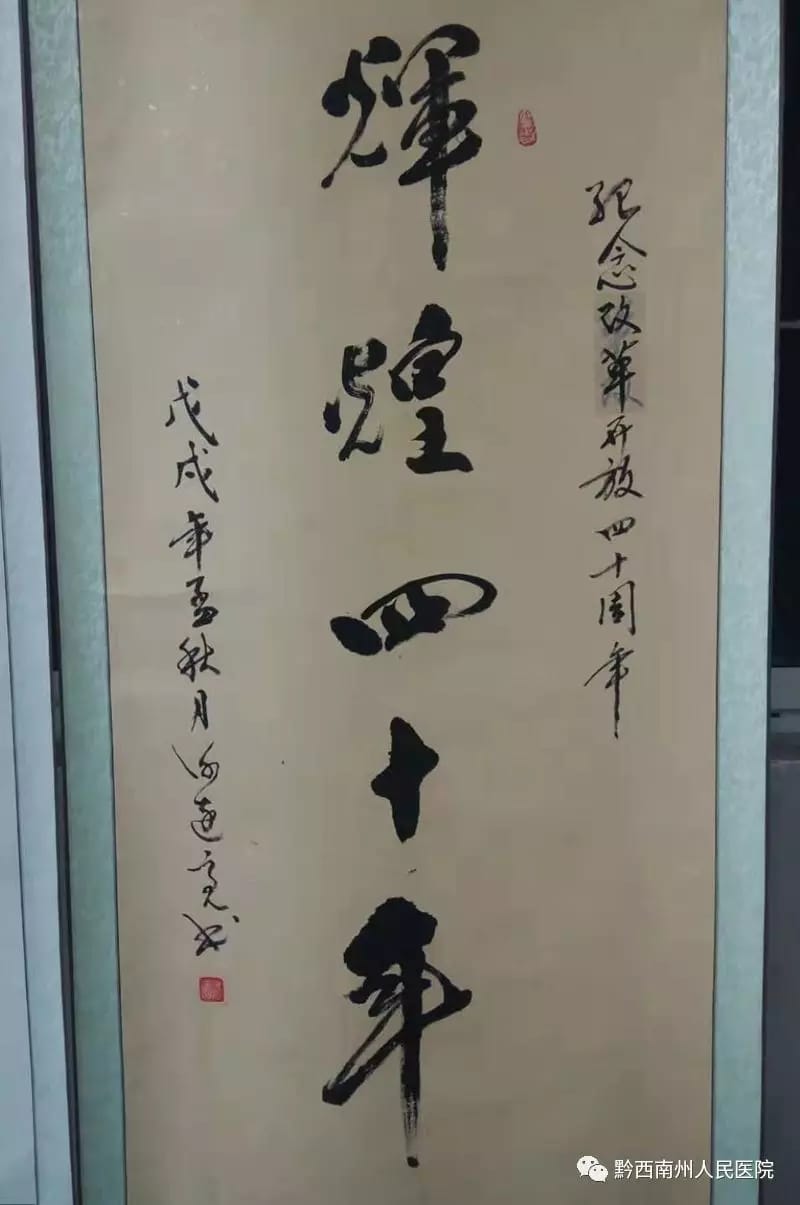 纪念改革开放四十周年
輝煌四十年
戊戌年孟秋月
黔西南州人民医院